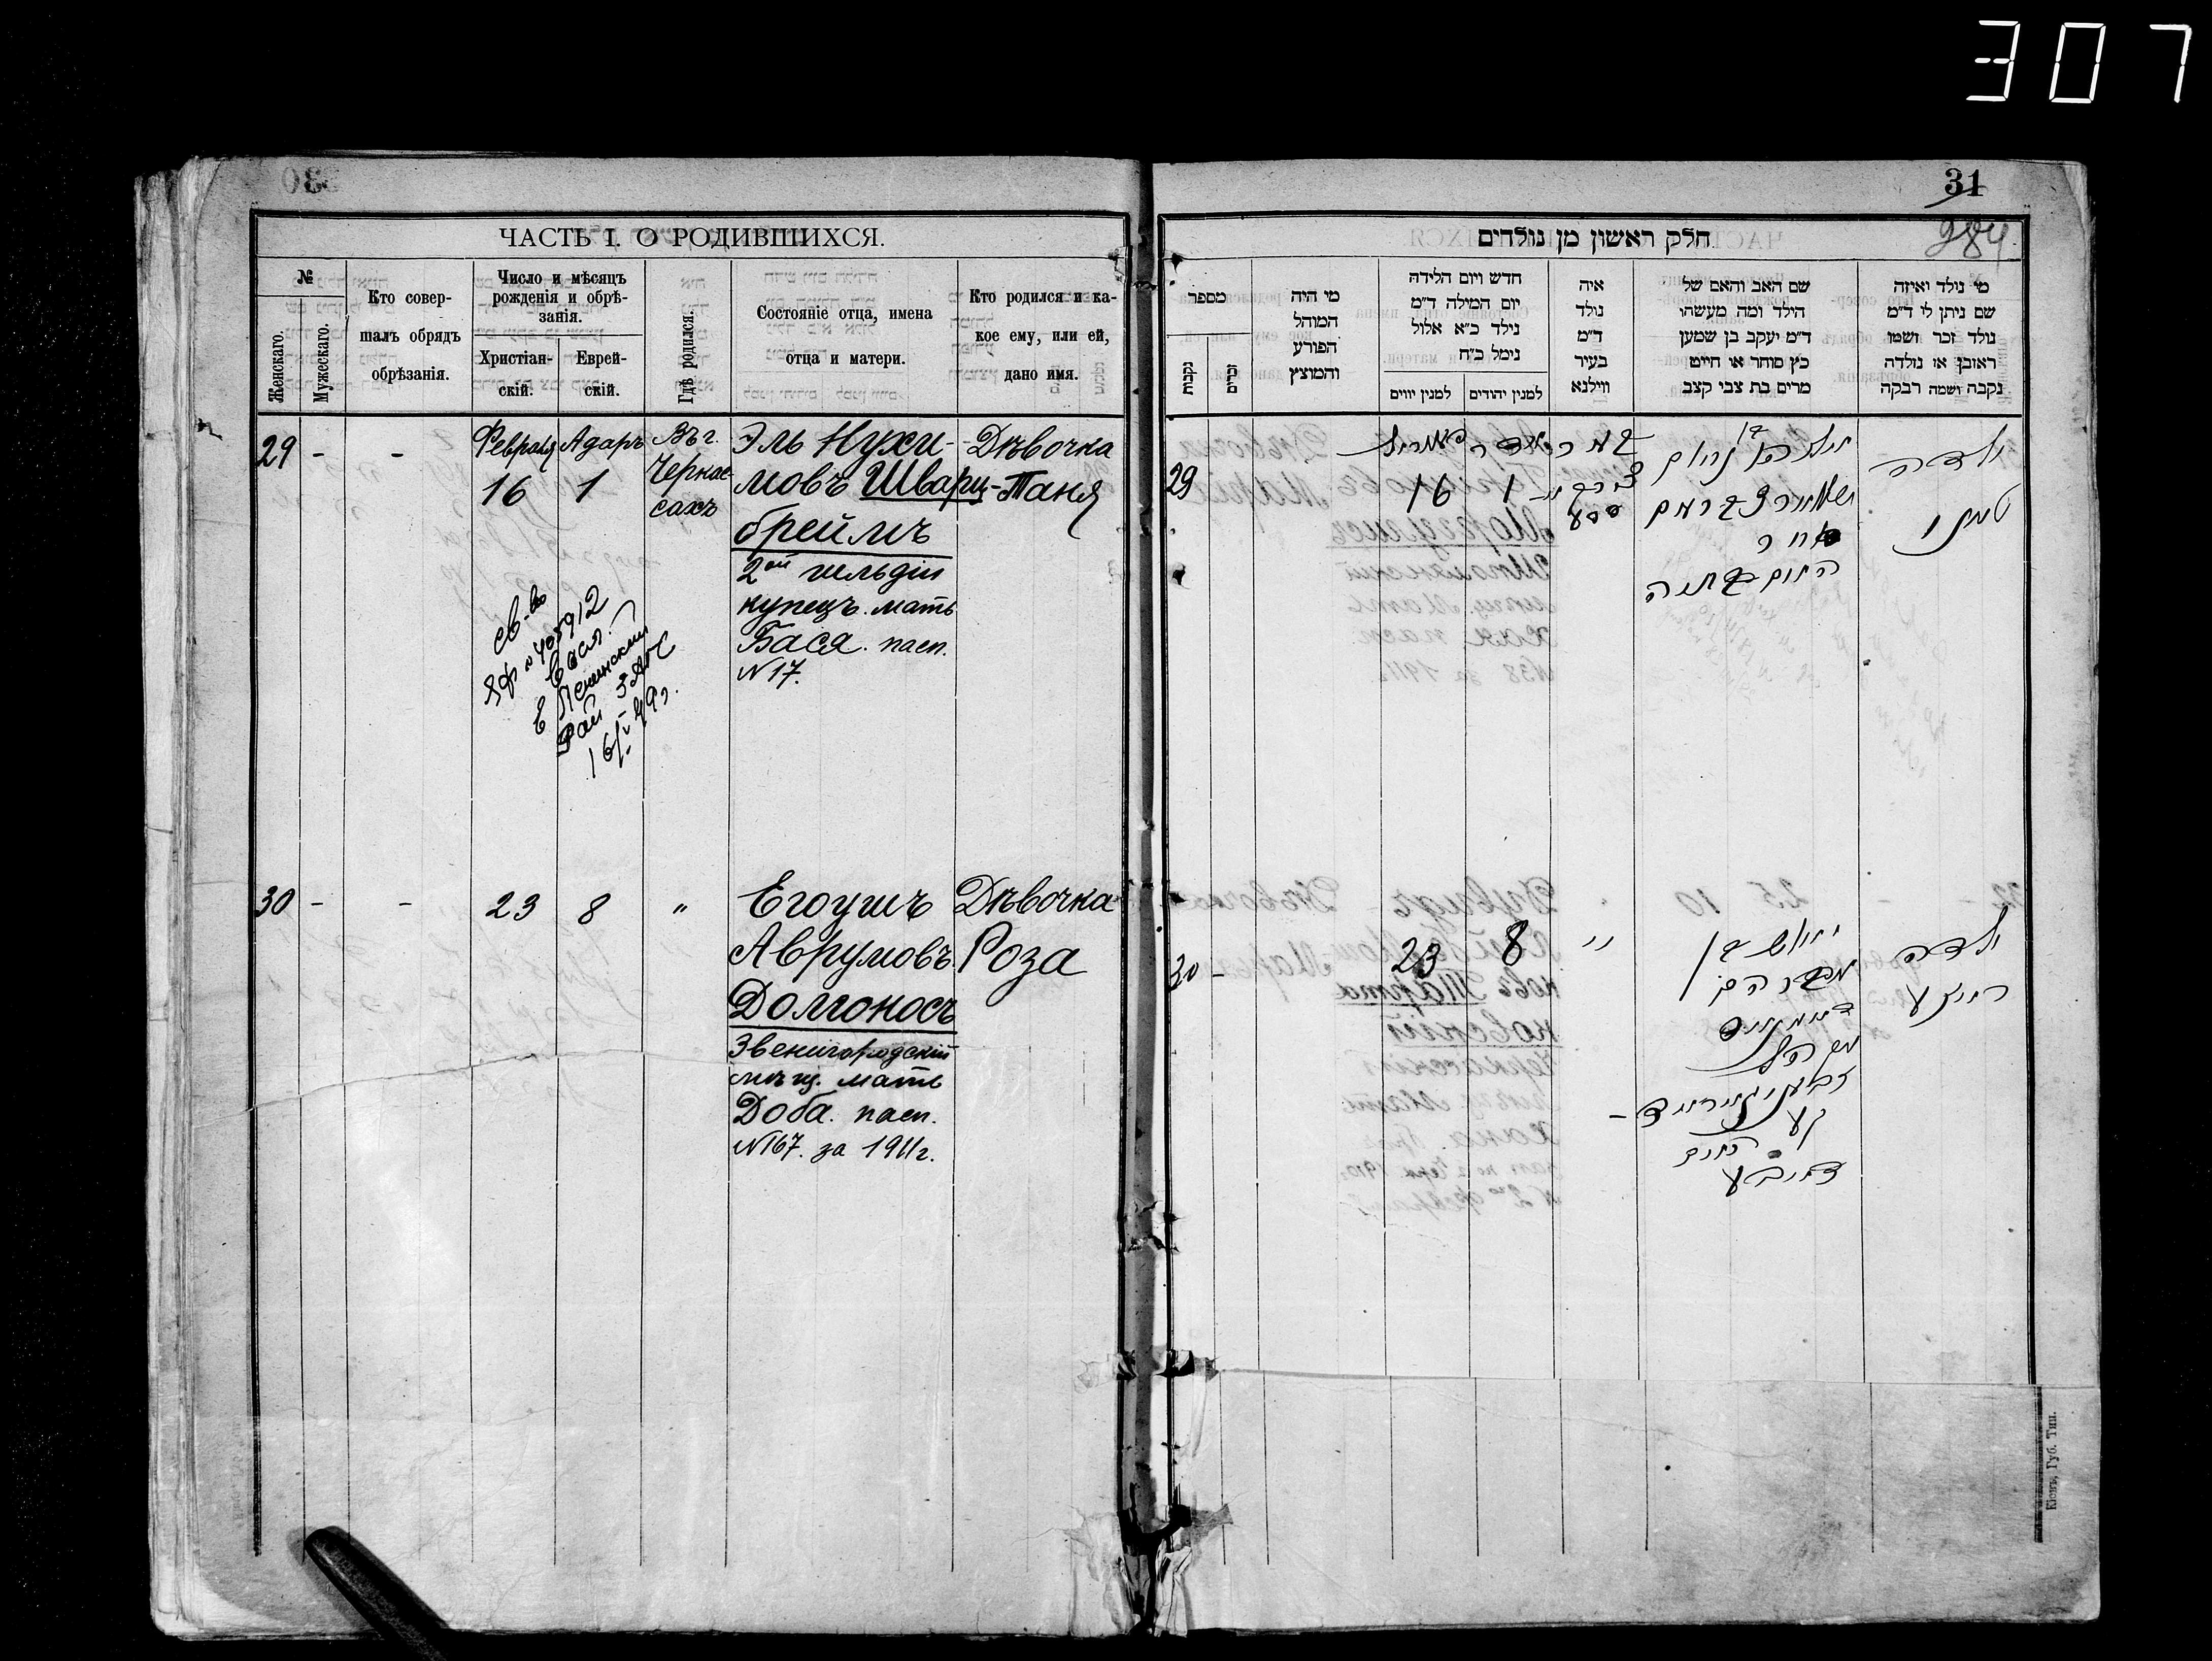 307
31
284
ЧАСТЬ I. О РОДИВШИХСЯ.
№
Женскаго.
Мужескаго.
Кто совер-
шалъ обрядъ
обрѣзанія.
Число и мѣсяцъ
рожденія и обрѣ-
занія.
Христіан-
скій.
Еврей-
скій.
Гдѣ родился.
Состояніе отца, имена
отца и матери.
Кто родился и ка-
кое ему, или ей,
дано имя.
29 - -
Февраля
16
Адаръ
1
Въ г.
Черкас-
сахъ
Эль Нухи-
мовъ Шварц-
бреймъ
2ой гильдіи
купецъ. мать
Бася. пасп.
N 17.
Дѣвочка
Таня
св-во
ЯФ № 405912
16/V-49г.
30 - - 23 8 "
Егоушъ
Аврумовъ
Долгоносъ
Звенигородскій
мѣщ. мать
Доба. пасп.
N 167. за 1911г.
Дѣвочка
Роза
חלק ראשון מן נולדים
מי נולד ואיזה
שם ניתן לו ד״מ
נולד זכר ושמו
ראובן או נולדה
נקבה ושמה רבקה
שם האב והאם של
הילד ומה מעשהו
ד״מ יעקב בן שמען
כץ סוחר או חייט
מרים בת צבי קצב
איה
נולד
ד״מ
בעיר
ווילנא
חדש ויום הלידה
יום המילה ד״מ
נולד כ״א אלול
נימל כ״ח
למנין יהודים
למנין יווים
מי היה
המוהל
הפורע
והמוצץ
מספר
זכרים
נקבות
ילדה
1
16
29
ילדה
רויזע
אברהם
האם
"
8
23
30 -
Кіевъ, Губ. Тип.